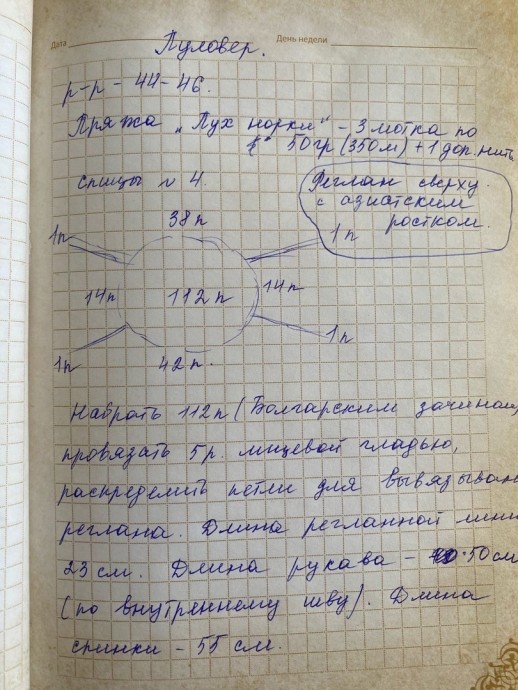 Дата
День недели
Пуловер.
р-р - 44-46.
Пряжа "Пух норки" - 3 мотка по
50гр (350м) + 1 доп. нить
спицы № 4.
Реглан сверху
с азиатским
ростком.
38п
1п
1п
14п
112п
14п
1п
1п
42п.
Набрать 112п (Болгарским зачином,
провязать 5 р. лицевой гладью,
распределить петли для вывязыван
реглана. Длина регланной лини
23 см. Длина рукава - 50см
(по внутреннему шву). Длина
спинки - 55 см.